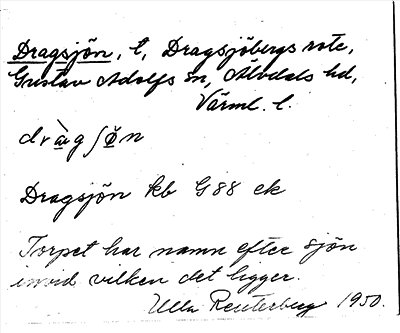 Dragsjön, t, Dragsjöbergs rote,
Gustav Adolfs sn, Älvdals hd,
Värml. l.
dràgʃøn
Dragsjön kb G88 ek
Torpet har namn efter sjön
invid vilken det ligger.
Ulla Reuterberg 1950.